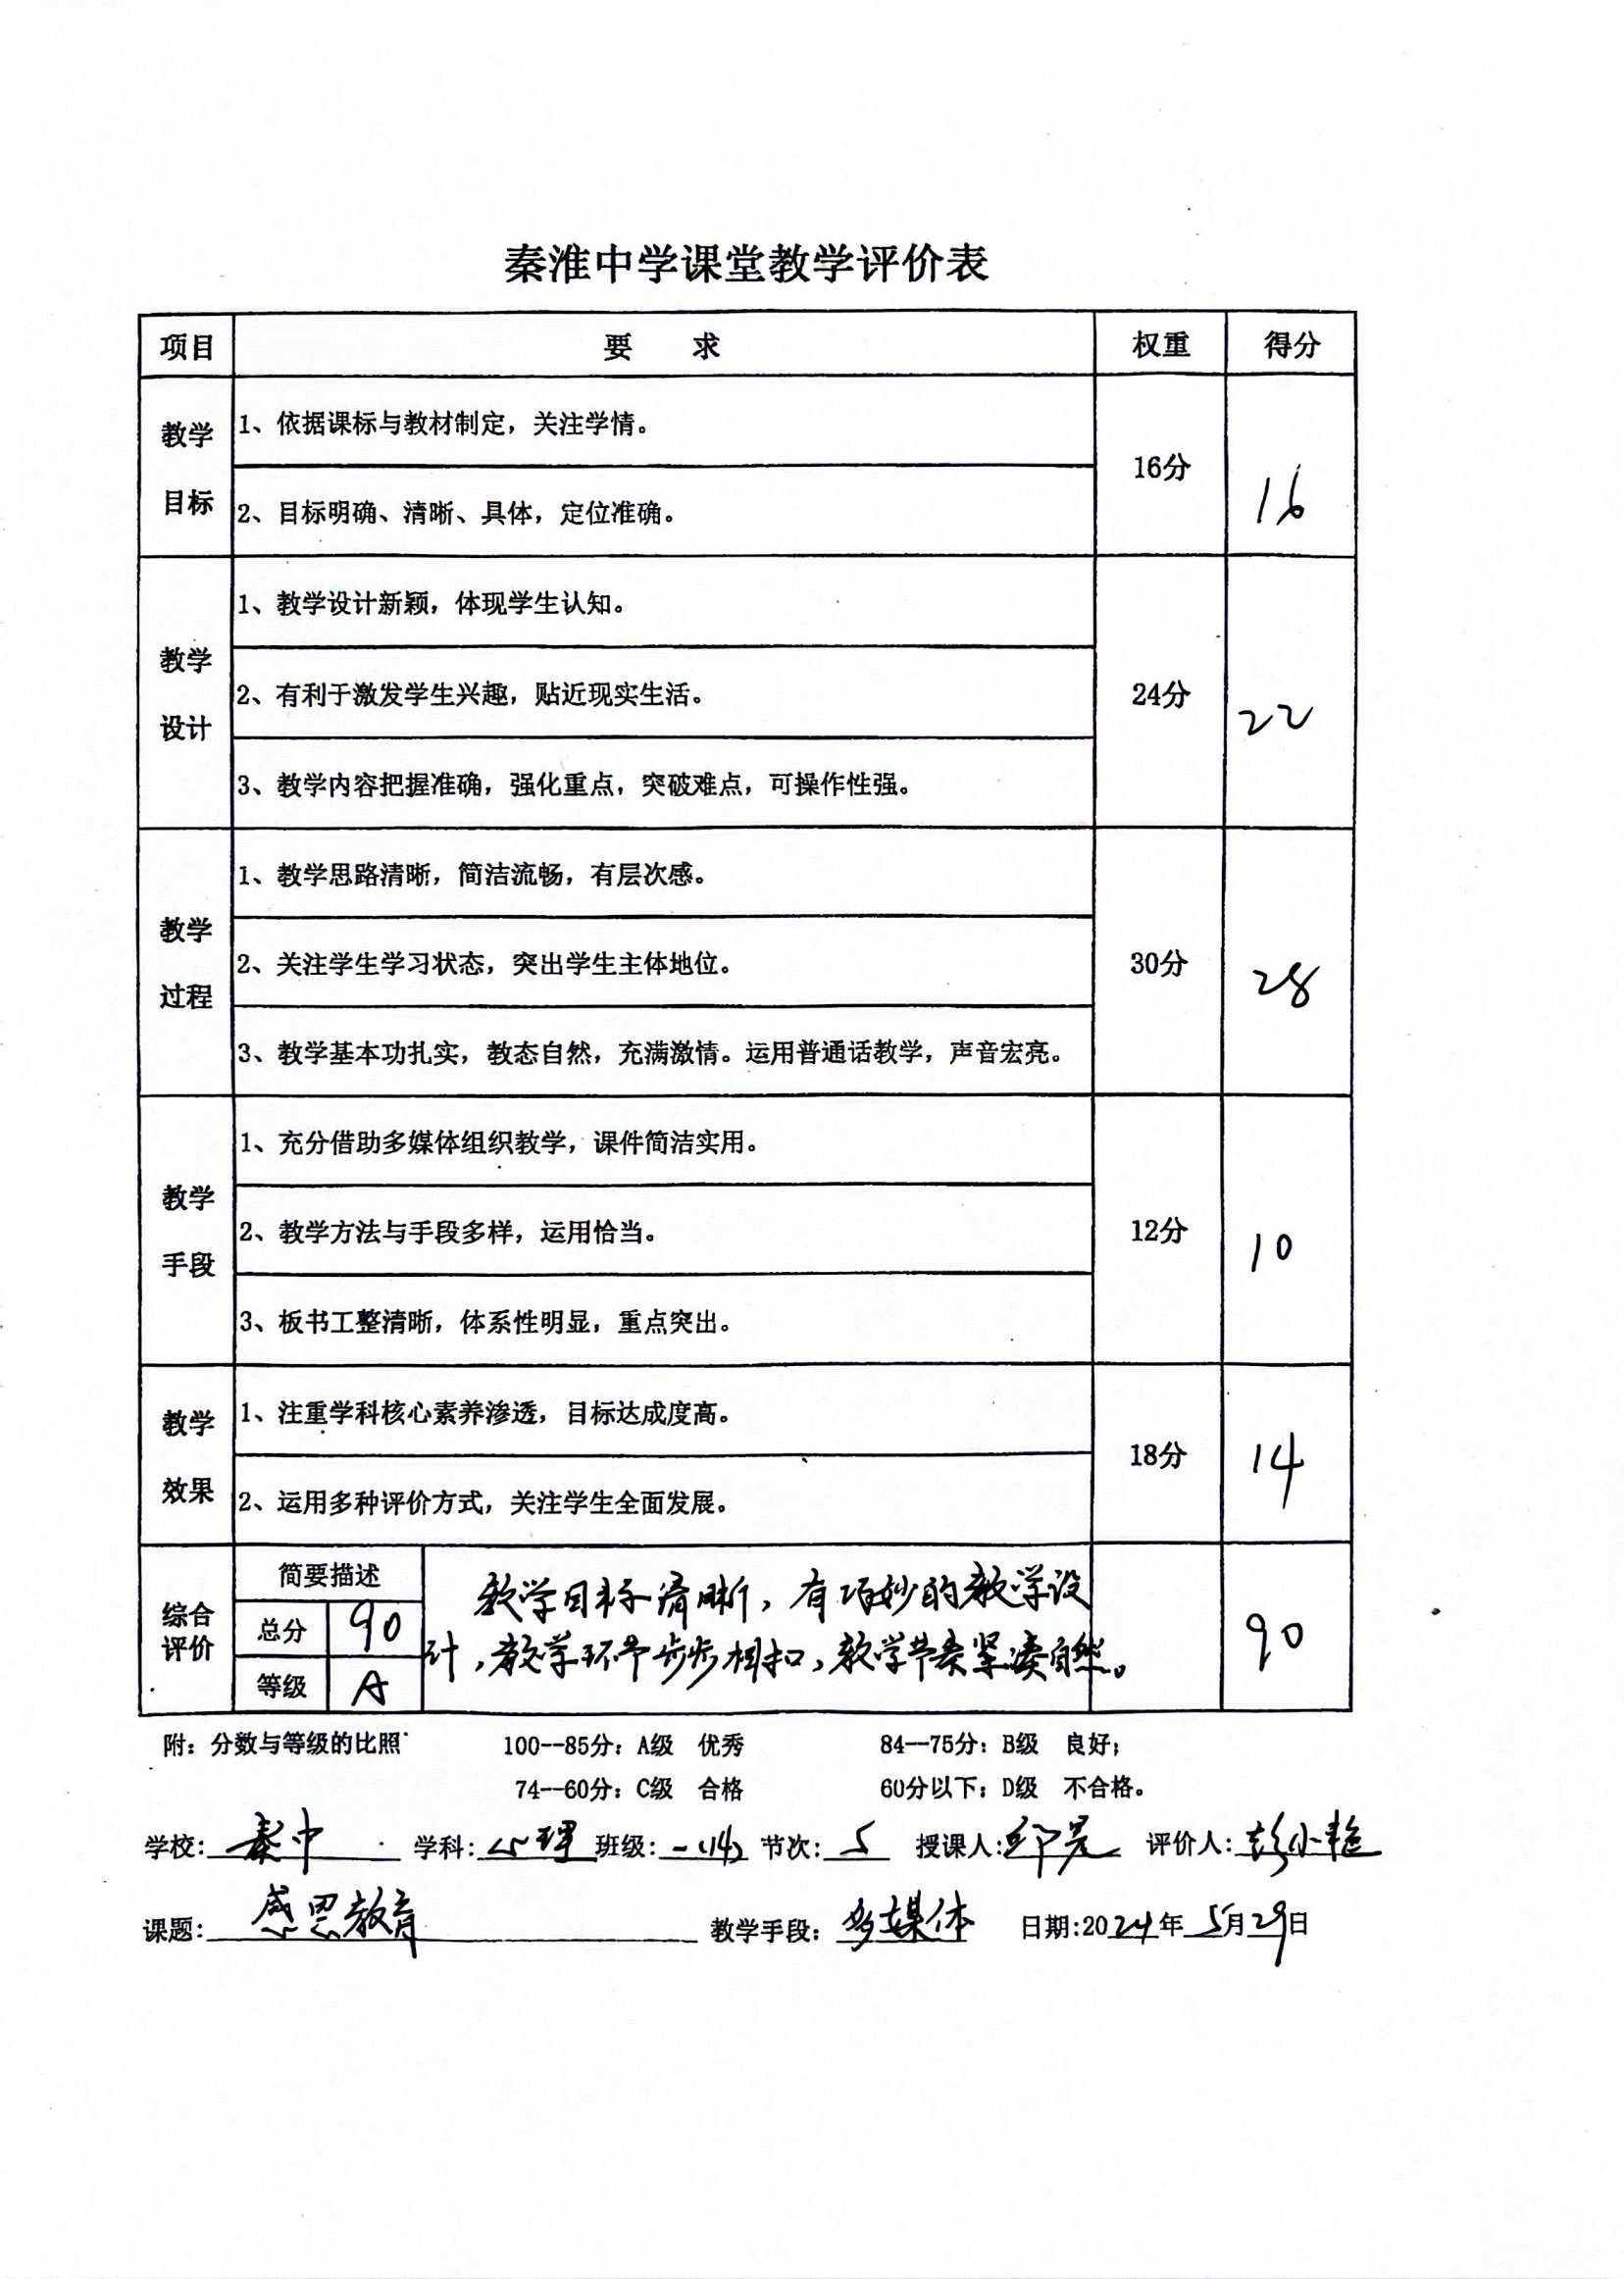 秦淮中学课堂教学评价表
项目 要 求 权重 得分
教学
目标
1、依据课标与教材制定，关注学情。
2、目标明确、清晰、具体，定位准确。
16分
16
教学
设计
1、教学设计新颖，体现学生认知。
2、有利于激发学生兴趣，贴近现实生活。
3、教学内容把握准确，强化重点，突破难点，可操作性强。
24分
22
教学
过程
1、教学思路清晰，简洁流畅，有层次感。
2、关注学生学习状态，突出学生主体地位。
3、教学基本功扎实，教态自然，充满激情。运用普通话教学，声音宏亮。
30分
28
教学
手段
1、充分借助多媒体组织教学，课件简洁实用。
2、教学方法与手段多样，运用恰当。
3、板书工整清晰，体系性明显，重点突出。
12分
10
教学
效果
1、注重学科核心素养渗透，目标达成度高。
2、运用多种评价方式，关注学生全面发展。
18分
14
综合
评价
简要描述
总分 90
等级 A
教学目标清晰，有巧妙的教学设
计，教学环节步步相扣，教学节奏紧凑自然。
90
附：分数与等级的比照 100--85分：A级 优秀 84--75分：B级 良好；
74--60分：C级 合格 60分以下：D级 不合格。
学校：秦中 学科：心理 班级：一(14) 节次：5 授课人： 评价人：彭小艳
课题：感恩教育 教学手段：多媒体 日期:2024年5月29日